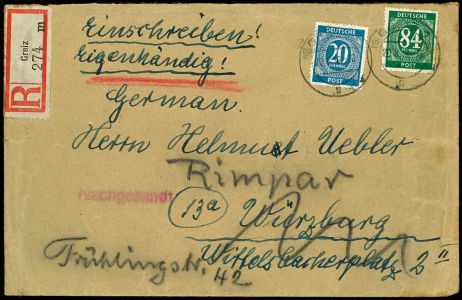 Einschreiben!
Eigenhändig!
German.
Herrn Helmut Uebler
Rimpar
13a Würzburg
Wittelsbacherplatz 2 II
Frühlingstr. 42
Nachgesandt
R
Greiz
274 m
DEUTSCHE
20
PFENNIG
POST
DEUTSCHE
84
PFENNIG
POST